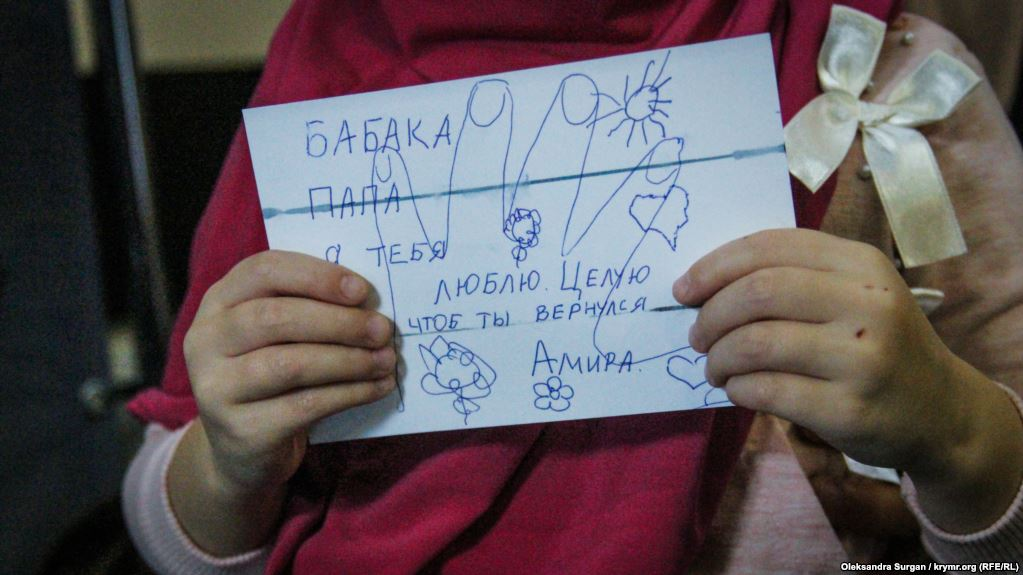 БАБАКА
ПАПА
Я ТЕБЯ
ЛЮБЛЮ. ЦЕЛУЮ
ЧТОБ ТЫ ВЕРНУЛСЯ
АМИРА.
Oleksandra Surgan / krymr.org (RFE/RL)